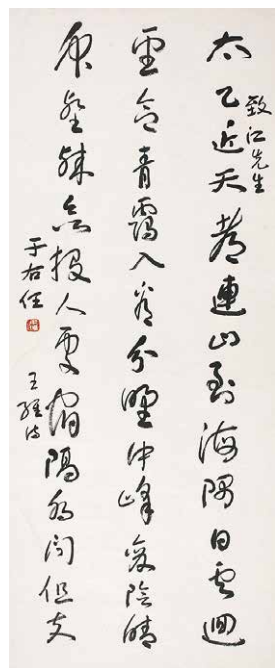 致江先生
太乙近天都連山到海隅白雲迴
望合青靄入看分野中峰變陰晴
眾壑殊欲投人處宿隔水問樵夫
王維詩
于右任